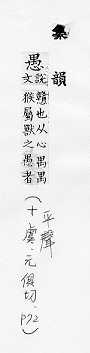 集韻
愚
說
文
戇也从心禺禺
猴屬獸之愚者
(十虞.元俱切.
P72)
平聲